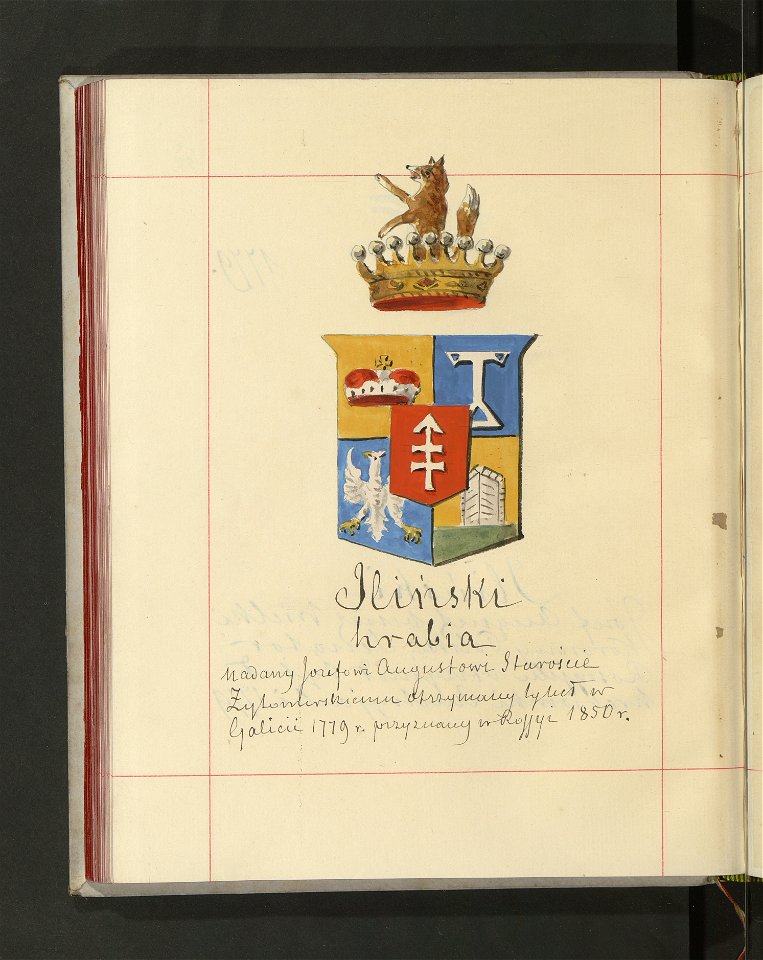 Iliński
hrabia
Nadany Jozefowi Augustowi Staroście
Żytomirskiemu otrzymany tytuł w
Galicii 1779 r. przyznany w Rossyi 1850 r.
1779